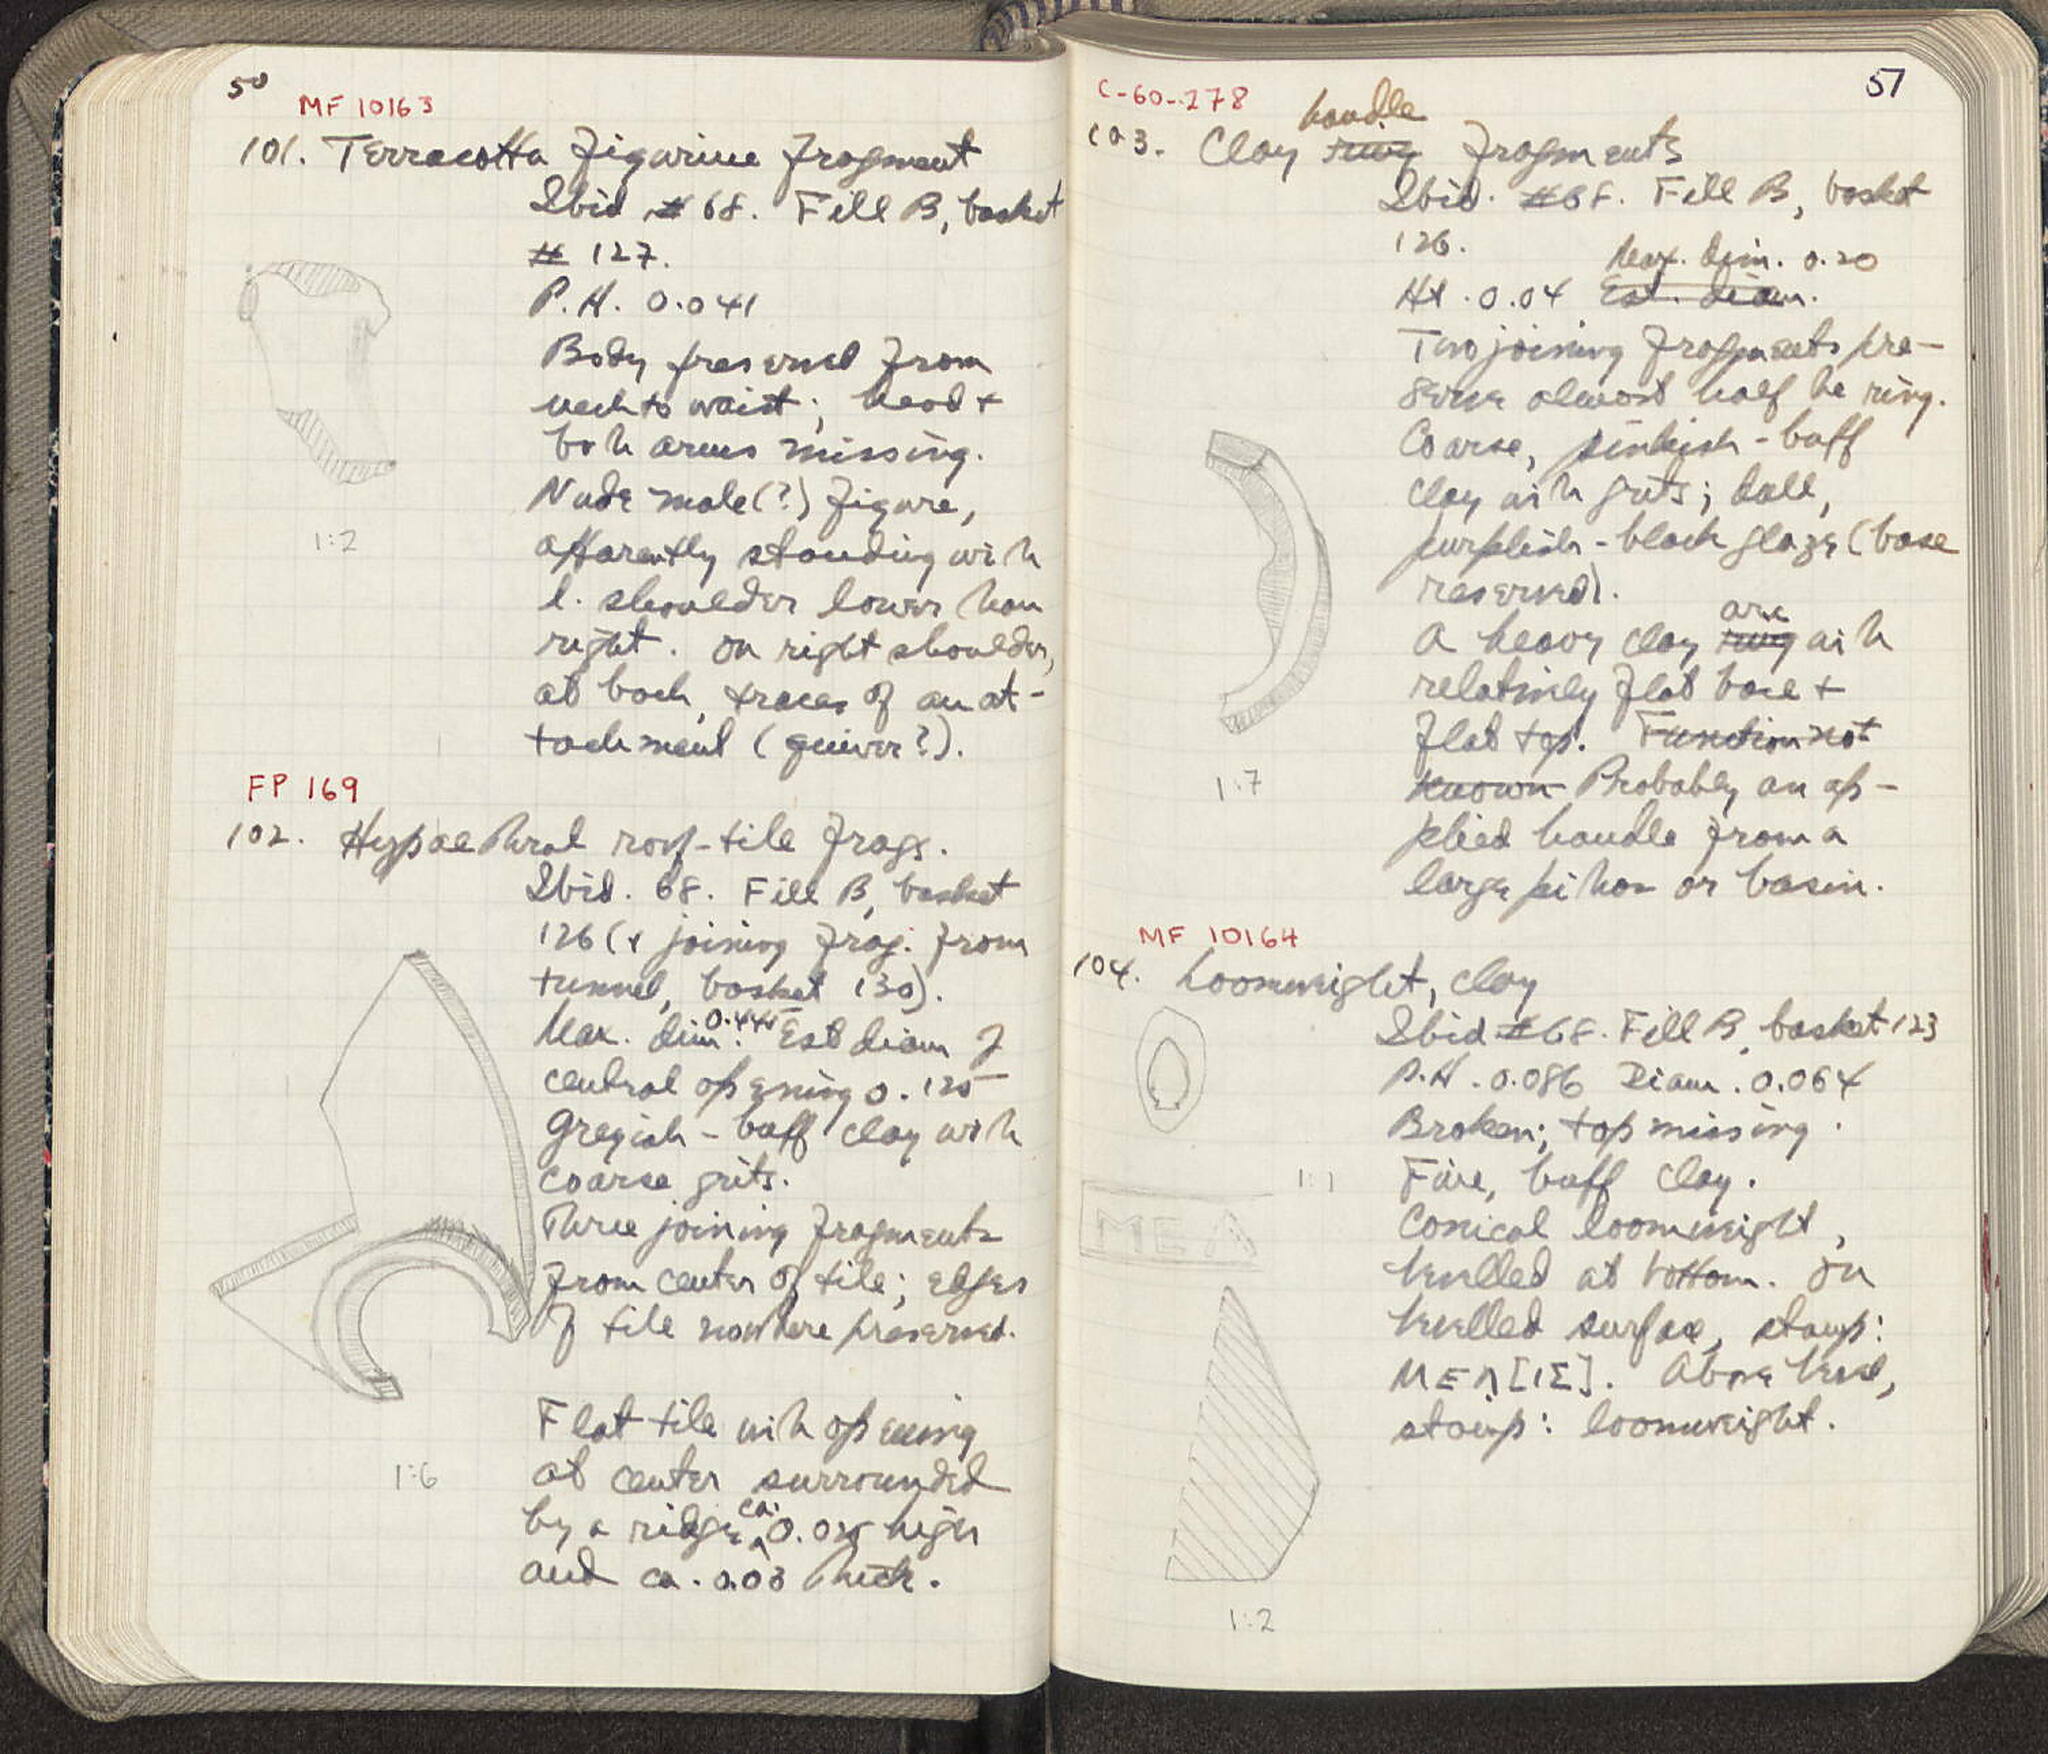 50
MF 10163
101. Terracotta figurine fragment
Ibid #68. Fill B, basket
# 127.
P.H. 0.041
Body preserved from
neck to waist; head +
both arms missing.
Nude male(?) figure,
apparently standing with
l. shoulder lower than
right. On right shoulder,
at back, traces of an at-
tachment (quiver?).
1:2
FP 169
102. Hypaethral roof-tile frags.
Ibid. 68. Fill B, basket
126 (+ joining frag. from
tunnel, basket 130).
Max. dim. 0.445 Est diam of
central opening 0.125
Greyish-buff clay with
coarse grits.
Three joining fragments
from center of tile; edges
of tile nowhere preserved.
Flat tile with opening
at center surrounded
by a ridge ca. high
and ca. 0.03 thick.
1:6
51
C-60-278
handle
103. Clay ring fragments
Ibid. #68. Fill B, basket
126.
Max. dim. 0.20
Ht. 0.04 Est. diam.
Two joining fragments pre-
serve almost half the ring.
Coarse, pinkish-buff
clay with grits; dull,
purplish-black glaze (base
reserved).
arc
A heavy clay ring with
relatively flat base +
flat top. Function not
known Probably an ap-
plied handle from a
large pithos or basin.
1:7
MF 10164
104. Loomweight, clay
Ibid #68. Fill B, basket 123
P.H. 0.086 Diam. 0.064
Broken; top missing.
Fine, buff clay.
Conical loomweight,
bevelled at bottom. On
bevelled surface, stamp:
ΜΕΛ[ΙΣ]. Above bevel,
stamp: loomweight.
1:1
ΜΕΛ
1:2